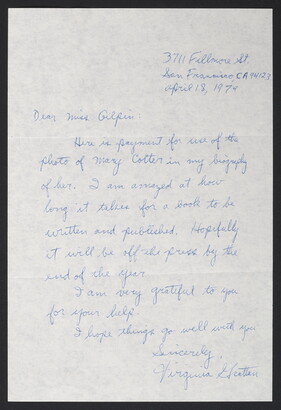 3711 Fillmore St.
San Francisco, CA 94123
April 18, 1974
Dear Miss Gilpin:
Here is payment for use of the
photo of Mary Colter in my biography
of her. I am amazed at how
long it takes for a book to be
written and published. Hopefully
it will be off the press by the
end of the year.
I am very grateful to you
for your help.
I hope things go well with you.
Sincerely,
Virginia Grattan